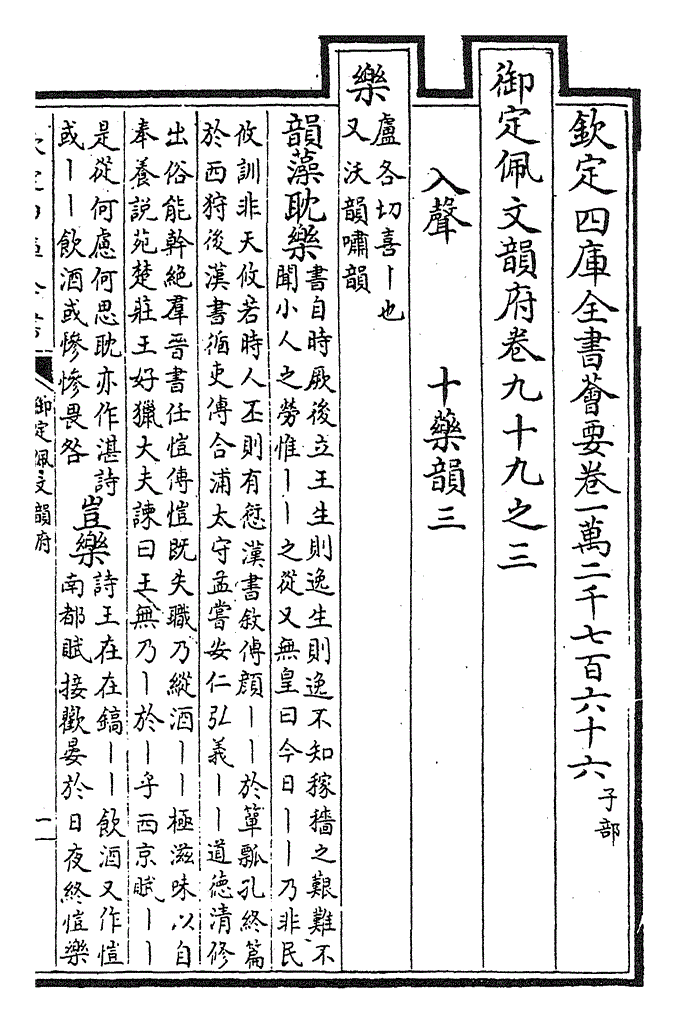 欽定四庫全書薈要卷一萬二千七百六十六 子部
御定佩文韻府卷九十九之三
入聲 十藥韻三
樂
盧各切喜丨也
又沃韻嘯韻
韻藻耽樂
書自時厥後立王生則逸生則逸不知稼穡之艱難不
聞小人之勞惟丨丨之從又無皇曰今日丨丨乃非民
攸訓非天攸若時人丕則有愆漢書敘傳顔丨丨於簞瓢孔終篇
於西狩後漢書循吏傳合浦太守孟嘗安仁弘義丨丨道德清修
出俗能幹絶羣晉書任愷傳愷既失職乃縱酒丨丨極滋味以自
奉養説苑楚莊王好獵大夫諫曰王無乃丨於丨乎西京賦丨丨
是從何慮何思耽亦作湛詩
或丨丨飲酒或慘慘畏咎
豈樂
詩王在在鎬丨丨飲酒又作愷
南都賦接歡宴於日夜終愷樂
御定佩文韻府
一